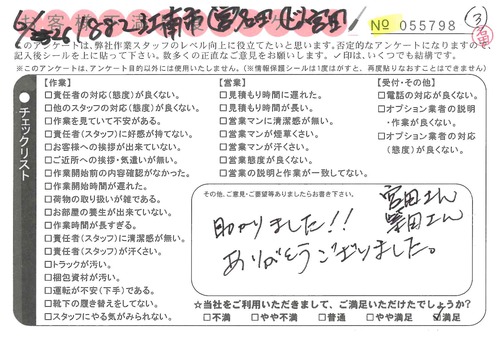 № 055798
③
このアンケートは、弊社作業スタッフのレベル向上に役立てたいと思います。否定的なアンケートになりますので、
記入後シールを上に貼って下さい。数多くの正直なご意見をお願いします。✓印は、いくつでも結構です。
※このアンケートは、アンケート目的以外には使用いたしません。(※情報保護シールは1度はがすと、再度貼りなおすことはできません)
チェックリスト
【作業】
□責任者の対応(態度)が良くない。
□他のスタッフの対応(態度)が良くない。
□作業を見ていて不安がある。
□責任者(スタッフ)に好感が持てない。
□お客様への挨拶が出来ていない。
□ご近所への挨拶・気遣いが無い。
□作業開始前の内容確認がなかった。
□作業開始時間が遅れた。
□荷物の取り扱いが雑である。
□お部屋の養生が出来ていない。
□作業時間が長すぎる。
□責任者(スタッフ)に清潔感が無い。
□責任者(スタッフ)が汗くさい。
□トラックが汚い。
□梱包資材が汚い。
□運転が不安(下手)である。
□靴下の履き替えをしてない。
□スタッフにやる気がみられない。
【営業】
□見積もり時間に遅れた。
□見積もり時間が長い。
□営業マンに清潔感が無い。
□営業マンが煙草くさい。
□営業マンが汗くさい。
□営業態度が良くない。
□営業の説明と作業が一致してない。
【受付・その他】
□電話の対応が良くない。
□オプション業者の説明
・作業が良くない。
□オプション業者の対応
(態度)が良くない。
その他、ご意見・ご要望等ありましたらお書き下さい。
宮田さん
助かりました!!
ありがとうございました。
☆当社をご利用いただきまして、ご満足いただけたでしょうか?
□不満 □やや不満 □普通 □やや満足 ☑満足